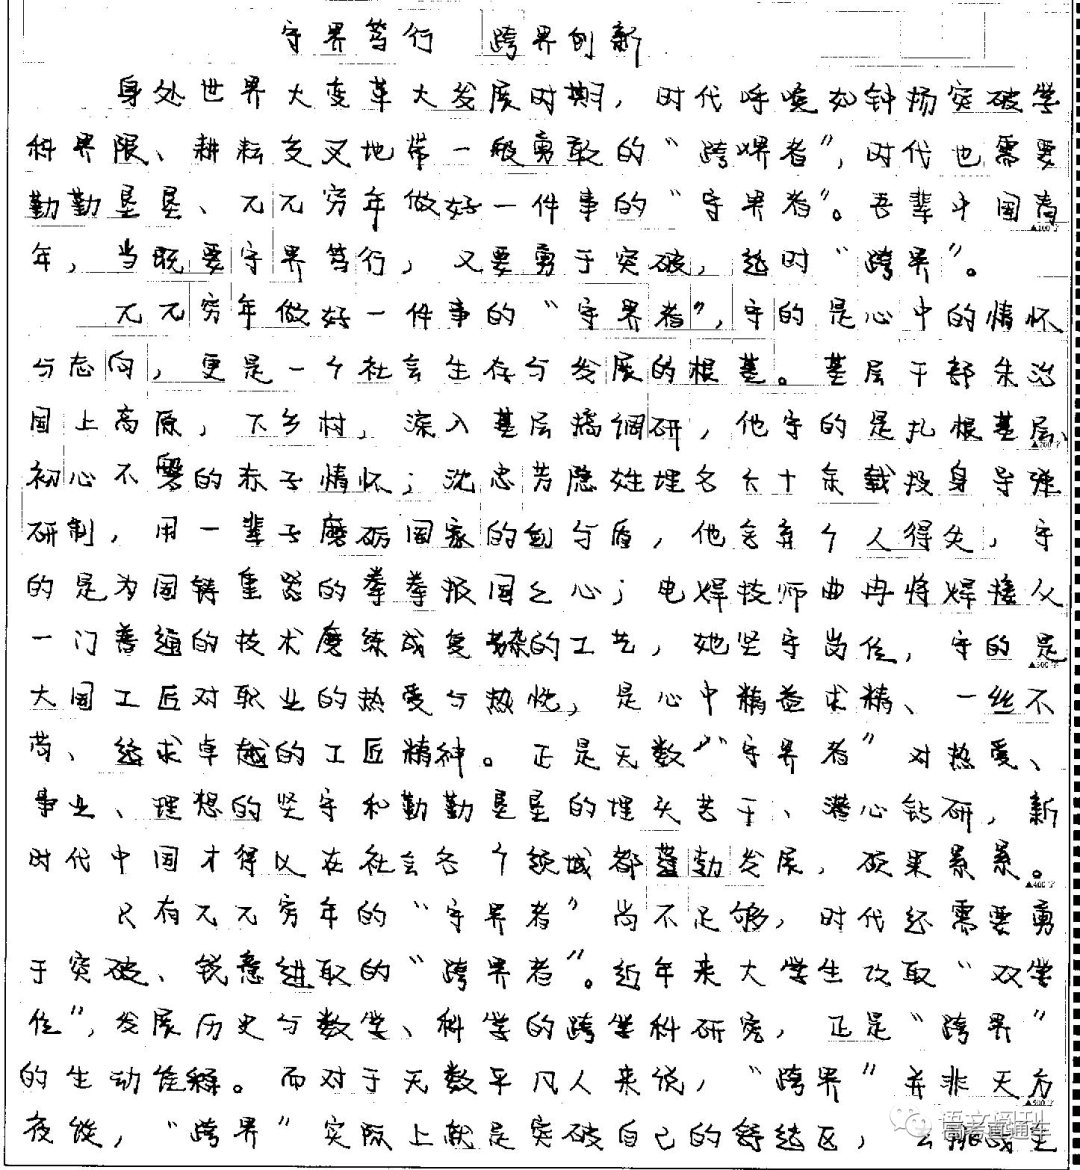 守界笃行 跨界创新
身处世界大变革大发展时期，时代呼唤如钟扬突破学
科界限、耕耘交叉地带一般勇敢的“跨界者”，时代也需要
勤勤垦垦、兀兀穷年做好一件事的“守界者”。吾辈中国青
年，当既要守界笃行，又要勇于突破，适时“跨界”。
兀兀穷年做好一件事的“守界者”，守的是心中的情怀
与志向，更是一个社会生存与发展的根基。基层干部朱治
国上高原，下乡村，深入基层搞调研，他守的是扎根基层
初心不的赤子情怀；沈忠芳隐姓埋名六十余载投身导弹
研制，用一辈子磨砺国家的剑与盾，他舍弃个人得失，守
的是为国铸重器的拳拳报国之心；电焊技师曲冉将焊接从
一门普通的技术磨练成复杂的工艺，她坚守岗位，守的是
大国工匠对职业的热爱与热忱，是心中精益求精、一丝不
苟、追求卓越的工匠精神。正是无数“守界者”对热爱、
事业、理想的坚守和勤勤垦垦的埋头苦干、潜心钻研，新
时代中国才得以在社会各个领域都蓬勃发展，硕果累累。
只有兀兀穷年的“守界者”尚不足够，时代还需要勇
于突破、锐意进取的“跨界者”。近年来大学生攻取“双学
位”，发展历史与数学、科学的跨学科研究，正是“跨界”
的生动诠释。而对于无数平凡人来说，“跨界”并非天方
夜谈，“跨界”实际上就是突破自己的舒适区，
▲100字
▲300字
▲400字
语文周刊
高考直通车